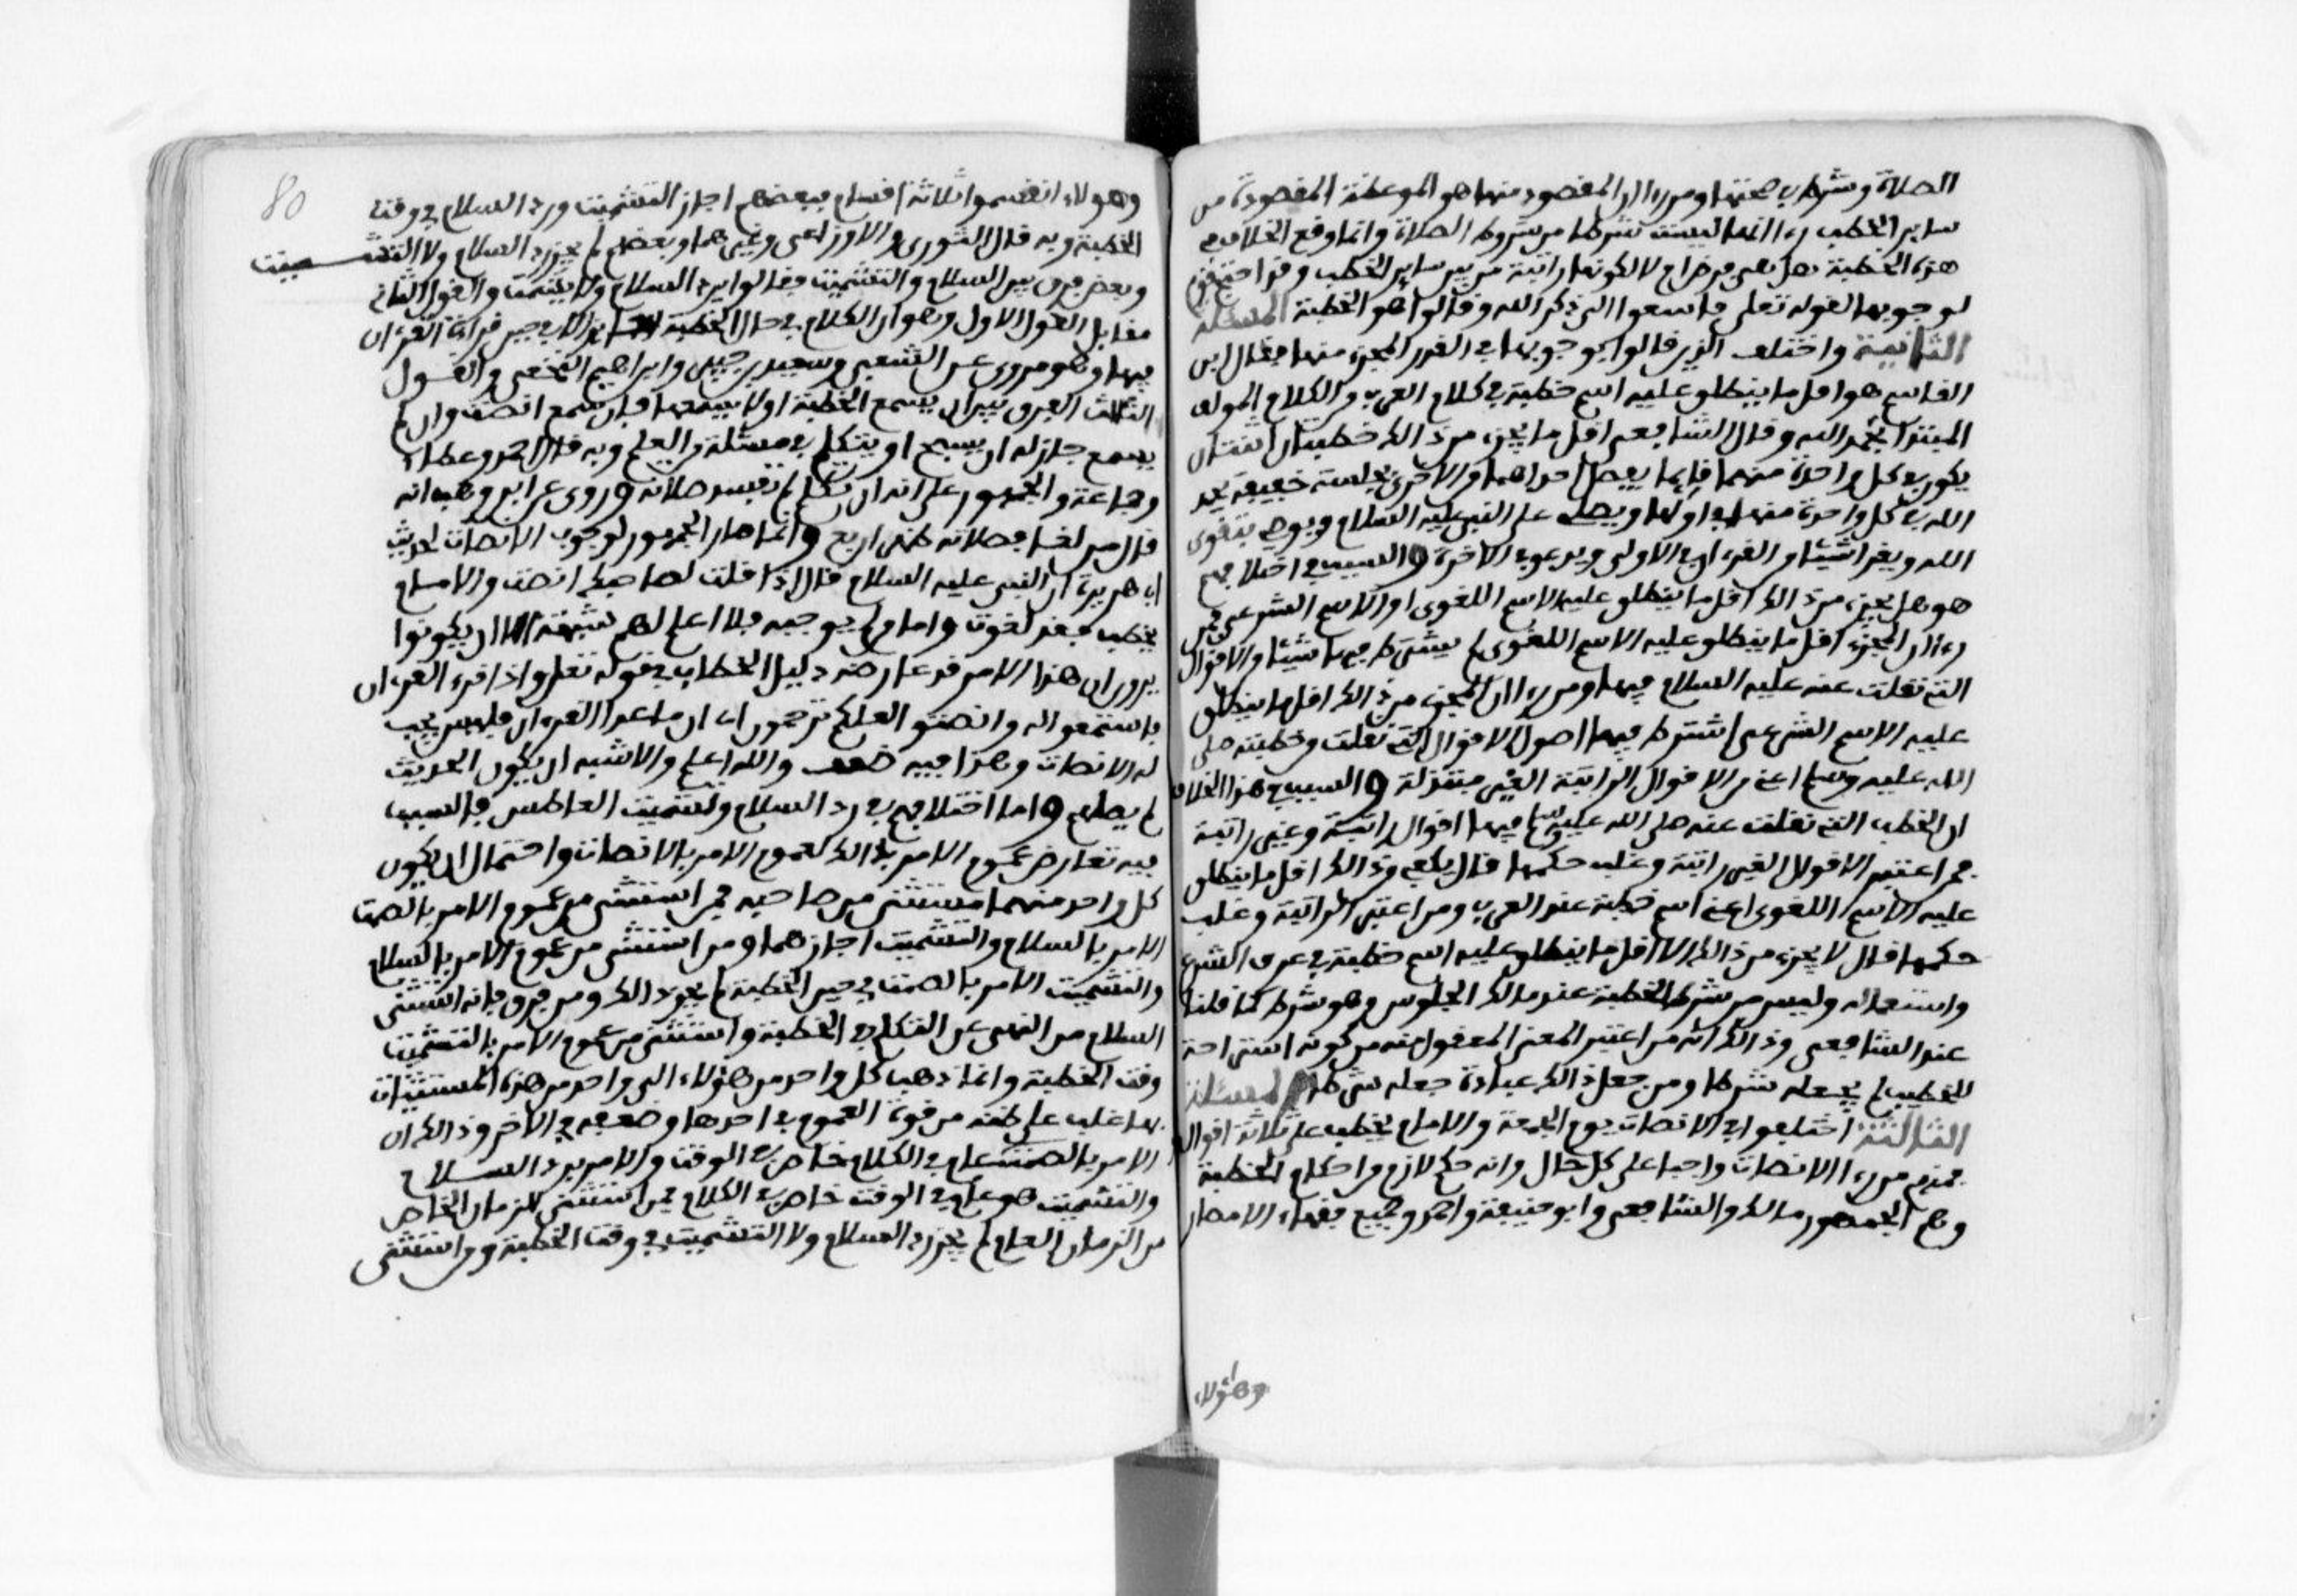 الصلاة وشرط في صحتها ومن رءا ان المقصود منها هو الموعظة المقصودة من
ساير الخطب رءا انها ليست شرطا من شروط الصلاة وانما وقع الخلاف في
هذه الخطبة هل هي فرض ام لا لكونها راتبة من بين ساير الخطب وقد احتج قوم
لوجوبها لقوله تعلى فاسعوا الى ذكر الله وقالوا هو الخطبة المسئلة
الثانية واختلف الذين قالوا بوجوبها في القدر المجزء منها فقال ابن
القاسم هو اقل ما ينطلق عليه اسم خطبة في كلام العرب من الكلام المولف
المبتدا بحمد الله وقال الشافعي اقل ما يجزء من ذالك خطبتان اثنتان
يكون في كل واحدة منهما قايما يفصل احداهما من الاخرى بجلسة خفيفة يحمد
الله في كل واحدة منهما في اولها ويصلى على النبي عليه السلام ويوصى بتقوى
الله ويقرا شيئا من القرءان في الاولى ويدعو في الاخرة والسبب في اختلافهم
هو هل يجزء من ذالك اقل ما ينطلق عليه الاسم اللغوى او الاسم الشرعى فمن
رءا ان المجزء اقل ما ينطلق عليه الاسم اللغوى لم يشترط فيها شيئا من الاقوال
التى نقلت عنه عليه السلام فيها ومن رءا ان المجزء من ذالك اقل ما ينطلق
عليه الاسم الشرعى اشترط فيها اصول الاقوال التى نقلت من خطبته صلى
الله عليه وسلم اعنى الاقوال الراتبة الغير مبتذلة والسبب في هذا الخلاف
ان الخطب التى نقلت عنه صلى الله عليه وسلم فيها اقوال راتبة وغير راتبة
فمن اعتبر الاقوال الغير راتبة وغلب حكمها قال يكفى من ذالك اقل ما ينطلق
عليه الاسم اللغوى اعنى اسم خطبة عند العرب ومن اعتبر الراتبة وغلب
حكمها قال لا يجزء من ذالك الا اقل ما ينطلق عليه اسم خطبة في عرف الشرع
واستعماله وليس من شرط الخطبة عند مالك الجلوس وهو شرط كما قلنا
عند الشافعى وذالك انه من اعتبر المعنى المعقول منه من كونه استراحة
للخطيب لم يجعله شرطا ومن جعل ذالك عبادة جعله شرطا المسئلة
الثالثة اختلفوا في الانصات يوم الجمعة والامام يخطب على ثلاثة اقوال
فمنهم من رءا الانصات واجبا على كل حال وانه حكم لازم من احكام الخطبة
وهم الجمهور مالك والشافعى وابو حنيفة واحمد وجميع فقهاء الامصار
وهؤلاء
80
وهولاء انقسموا ثلاثة اقسام فبعضهم اجاز التشميت ورد السلام في وقت
الخطبة وبه قال الثورى والاوزاعى وغيرهما وبعضهم لم يجز رد السلام ولا التشميت
وبعض فرق بين السلام والتشميت فقالوا يرد السلام ولا يشمت والقول الثانى
مقابل القول الاول وهو ان الكلام في حال الخطبة جايز الا في حين قراءة القرءان
فيها وهو مروى عن الشعبى وسعيد بن جبير وابراهيم النخعى والقول
الثالث الفرق بين ان يسمع الخطبة او لا يسمعها فان سمع انصت وان لم
يسمع جاز له ان يسبح او يتكلم في مسئلة من العلم وبه قال احمد وعطاء
وجماعة والجمهور على انه ان تكلم لم تفسد صلاته وروى عن ابن وهب انه
قال من لغا فصلاته ظهر اربع وانما صار الجمهور لوجوب الانصات لحديث
ابى هريرة ان النبى عليه السلام قال اذا قلت لصاحبك انصت والامام
يخطب فقد لغوت واما من لم يوجبه فلا اعلم لهم شبهة الا ان يكونوا
يرون ان هذا الامر قد عارضه دليل الخطاب في قوله تعلى واذا قرء القرءان
فاستمعوا له وانصتوا لعلكم ترحمون اى ان ما عدا القرءان فليس يجب
له الانصات وهذا فيه ضعف والله اعلم والاشبه ان يكون الحديث
لم يصلهم واما اختلافهم في رد السلام وتشميت العاطس فالسبب
فيه تعارض عموم الامر بذالك لعموم الامر بالانصات واحتمال ان يكون
كل واحد منهما مستثنى من صاحبه فمن استثنى من عموم الامر بالصمت
الامر بالسلام والتشميت اجازهما ومن استثنى من عموم الامر بالسلام
والتشميت الامر بالصمت في حين الخطبة لم يجز ذالك ومن فرق فانه استثنى
السلام من النهى عن التكلم في الخطبة واستثنى من عموم الامر بالتشميت
وقت الخطبة وانما ذهب كل واحد من هؤلاء الى واحد من هذه المستثنيات
لما غلب على ظنه من قوة العموم في احدها وضعفه في الاخر وذالك ان
الامر بالصمت عام في الكلام خاص في الوقت والامر برد السلام
والتشميت هو عام في الوقت خاص في الكلام فمن استثنى الزمان الخاص
من الزمان العام لم يجز رد السلام ولا التشميت في وقت الخطبة ومن استثنى